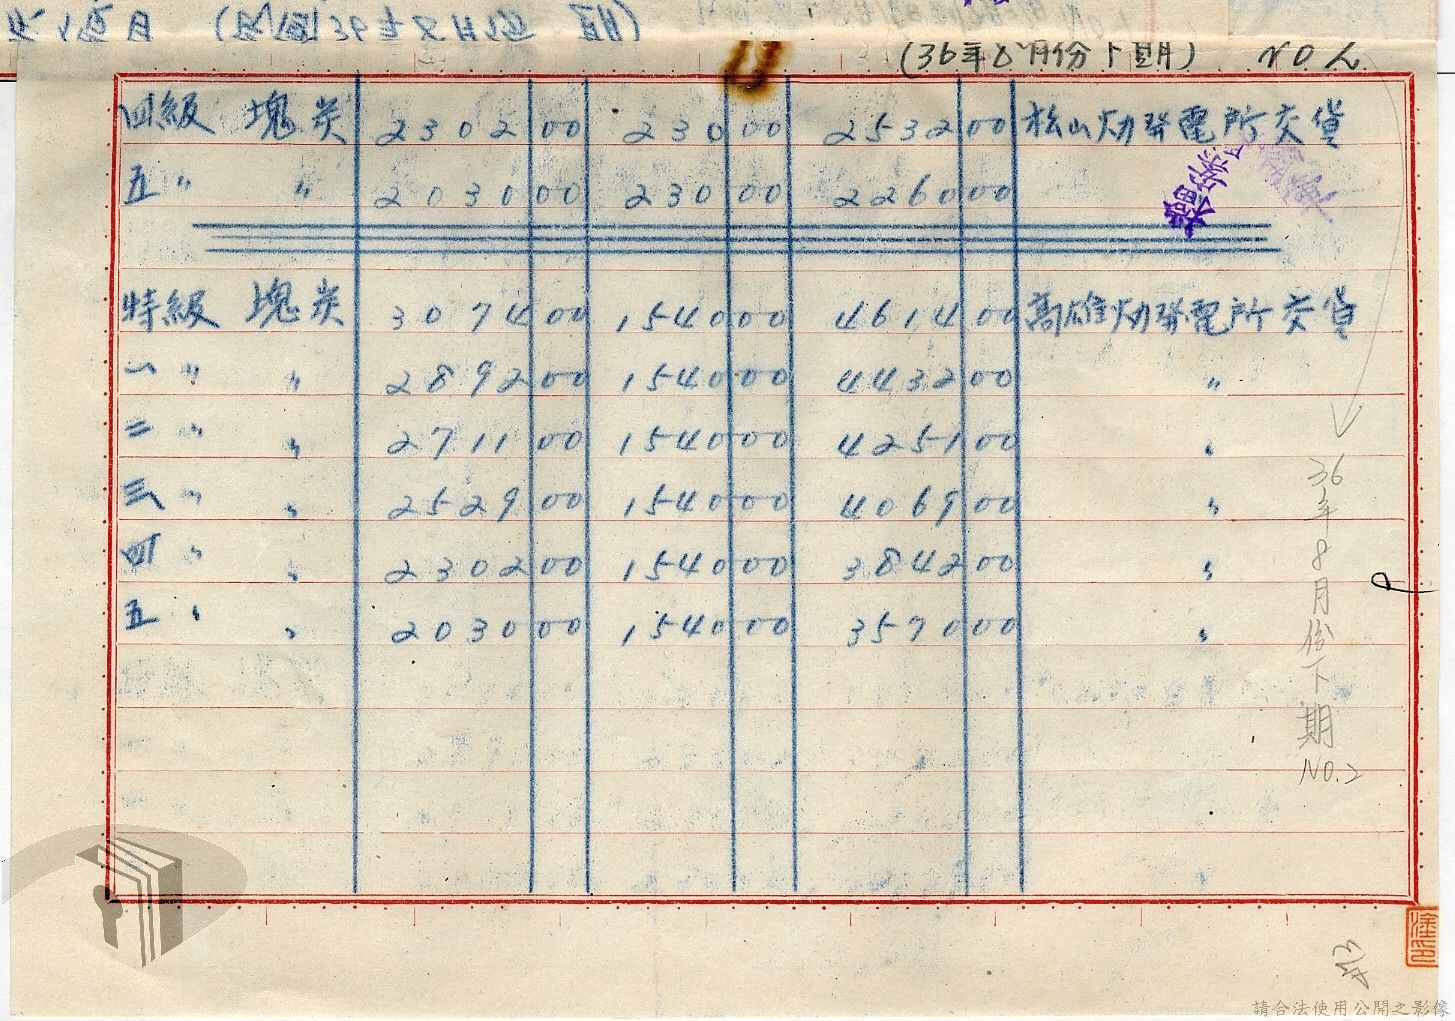 (36年8月份下期) NO 2
四級 塊炭 2302 00 230 00 2532 00 松山火力發電所交貨
五〃 〃 2030 00 230 00 2260 00
特級 塊炭 3074 00 1540 00 4614 00 高雄火力發電所交貨
一〃 〃 2892 00 1540 00 4432 00 〃
二〃 〃 2711 00 1540 00 4251 00 〃
三〃 〃 2529 00 1540 00 4069 00 〃
四〃 〃 2302 00 1540 00 3842 00 〃
五〃 〃 2030 00 1540 00 3570 00 〃
36年8月份下期 NO.2
請合法使用公開之影像